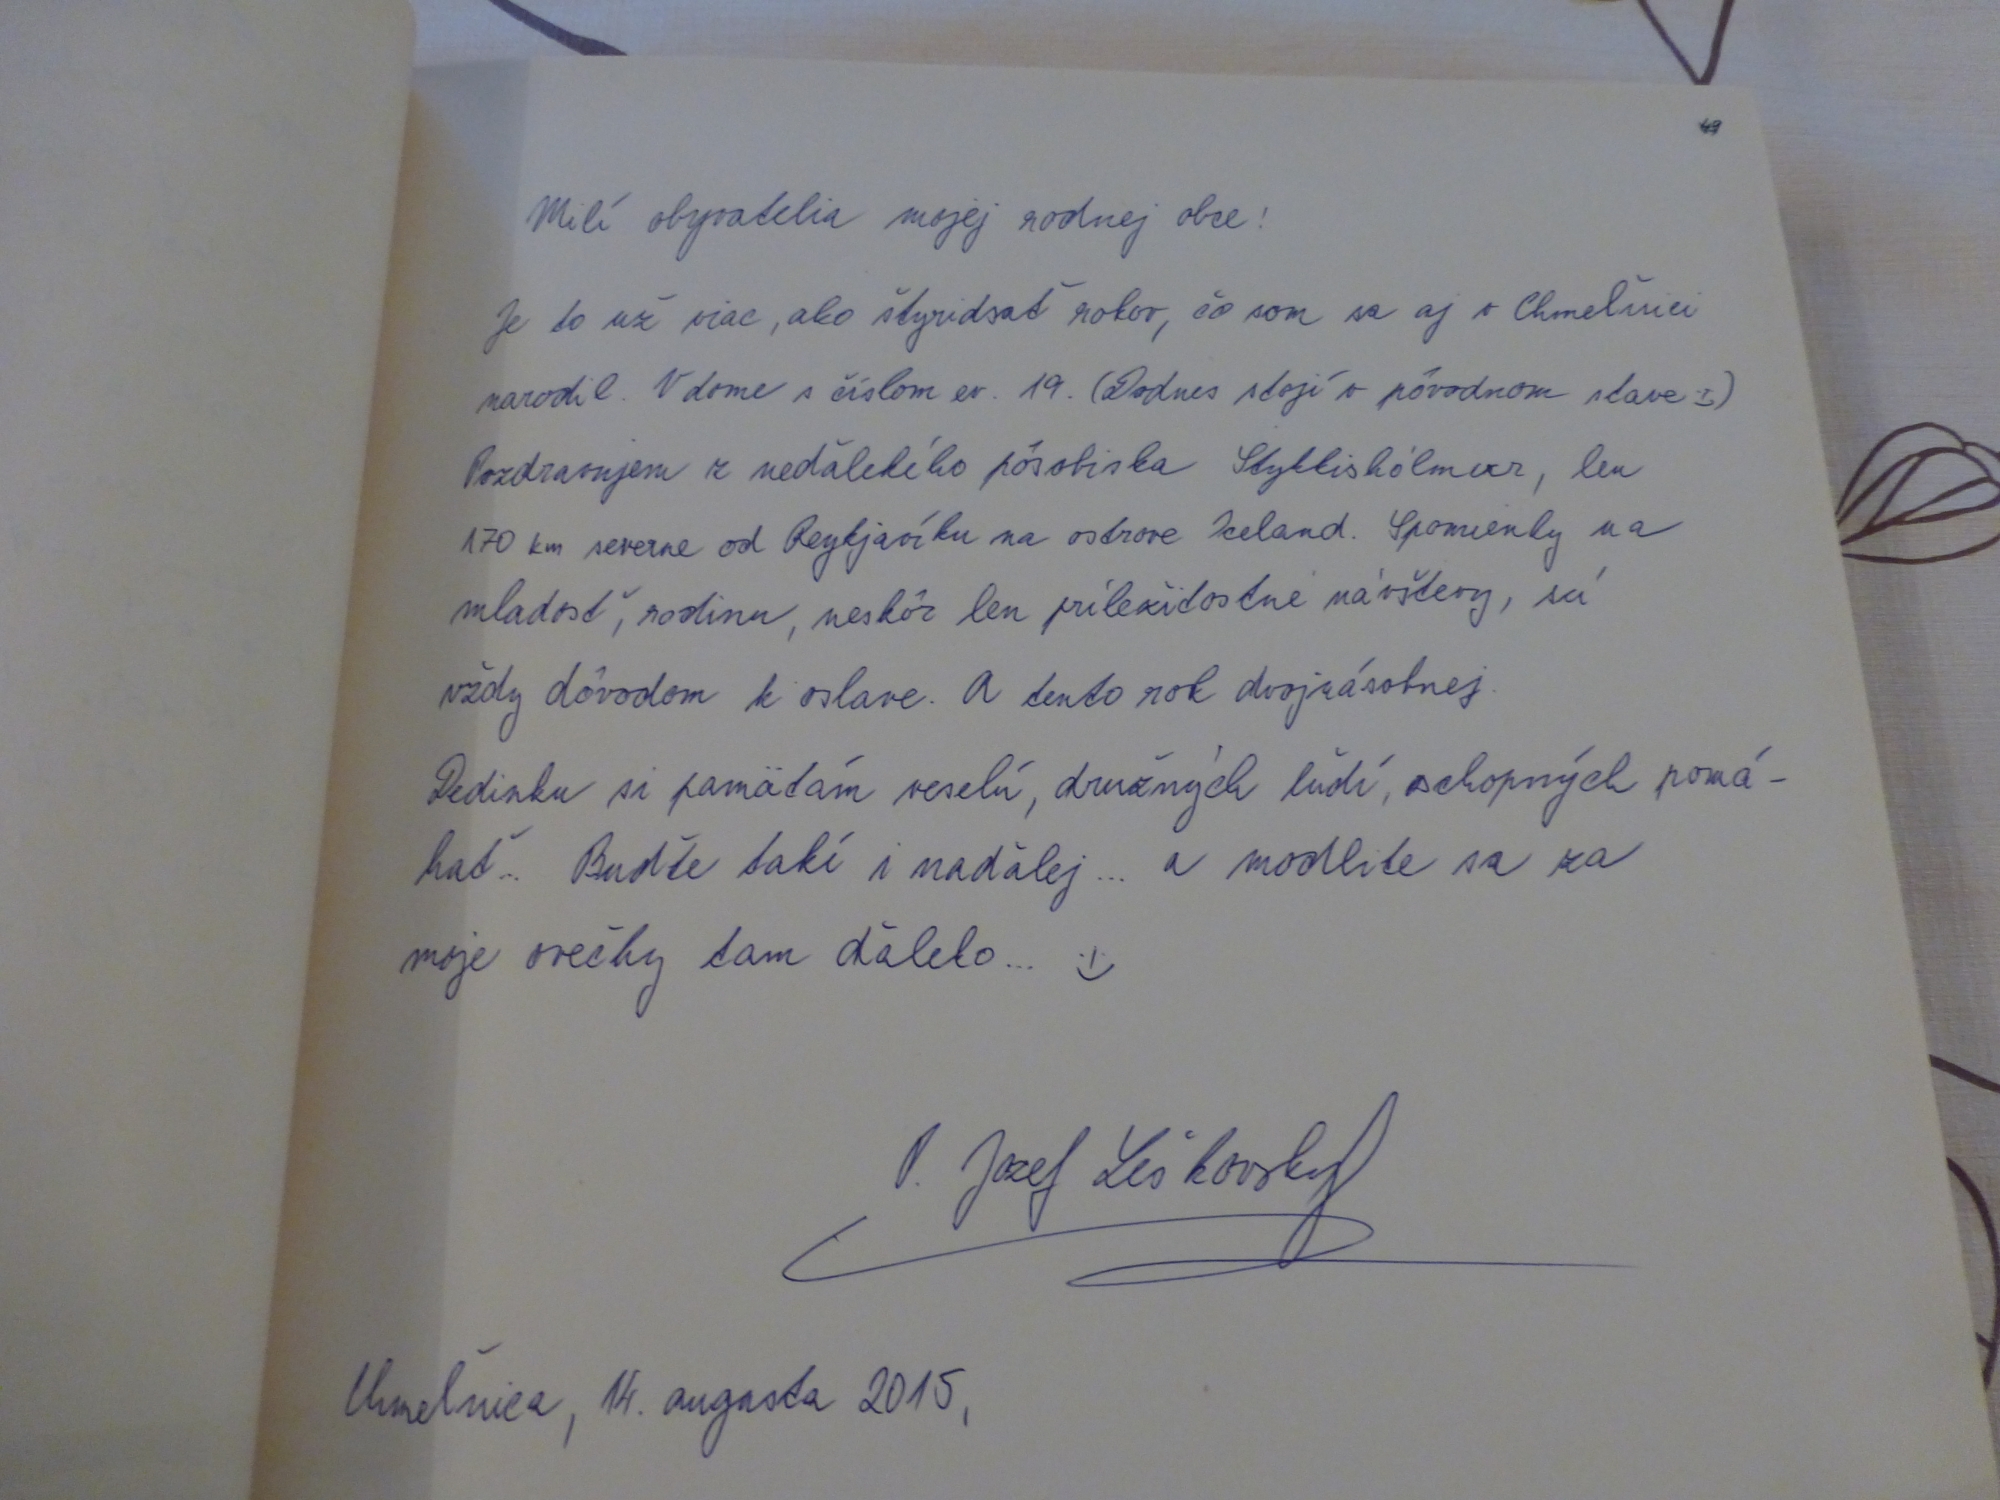 49
Milí obyvatelia mojej rodnej obce!
Je to už viac, ako štyridsať rokov, čo som sa aj v Chmeľnici
narodil. V dome s číslom ev. 19. (Dodnes stojí v pôvodnom stave :))
Pozdravujem z neďalekého pôsobiska Stykkishólmur, len
170 km severne od Reykjavíku na ostrove Iceland. Spomienky na
mladosť, rodinu, neskôr len príležitostné návštevy, sú
vždy dôvodom k oslave. A tento rok dvojzásobnej.
Dedinku si pamätám veselú, družných ľudí, schopných pomá-
hať... Buďte takí i naďalej... a modlite sa za
moje ovečky tam ďaleko... :)
P. Jozef Leškovský
Chmeľnica, 14. augusta 2015,